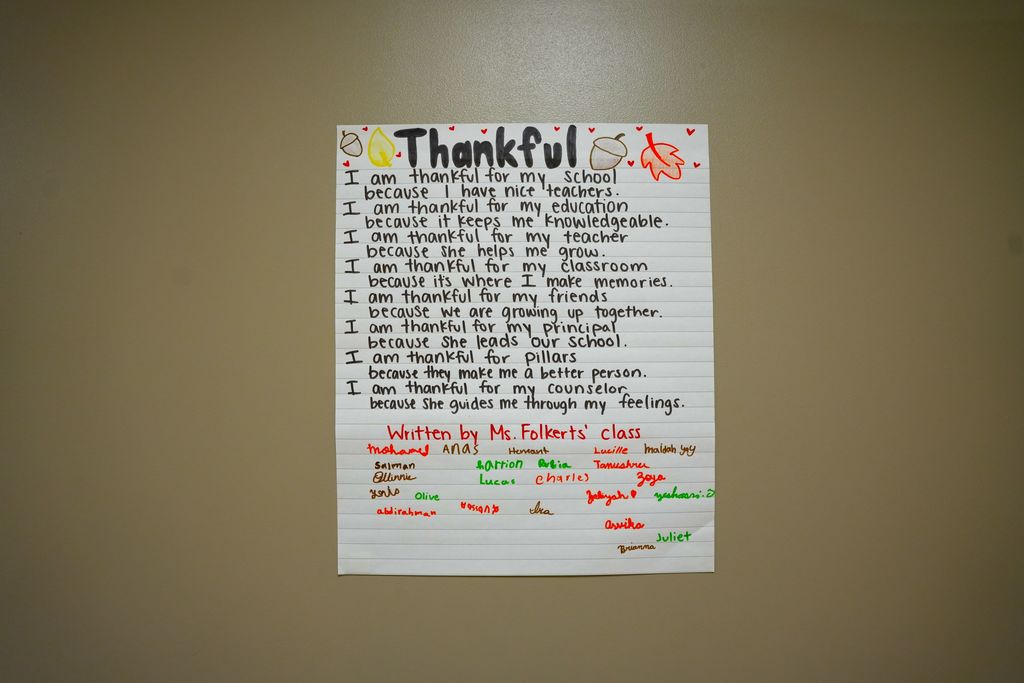 Thankful
I am thankful for my school
because I have nice teachers.
I am thankful for my education
because it keeps me knowledgeable.
I am thankful for my teacher
because she helps me grow.
I am thankful for my classroom
because it's where I make memories.
I am thankful for my friends
because we are growing up together.
I am thankful for my principal
because she leads our school.
I am thankful for pillars
because they make me a better person.
I am thankful for my counselor
because she guides me through my feelings.
Written by Ms. Folkerts' class
mohamed ANAS Hemant Lucille
Salman harrion Rubia Tanushree
Lucas charles Zoya
Olive
abdirahman Ira
Juliet
Brianna